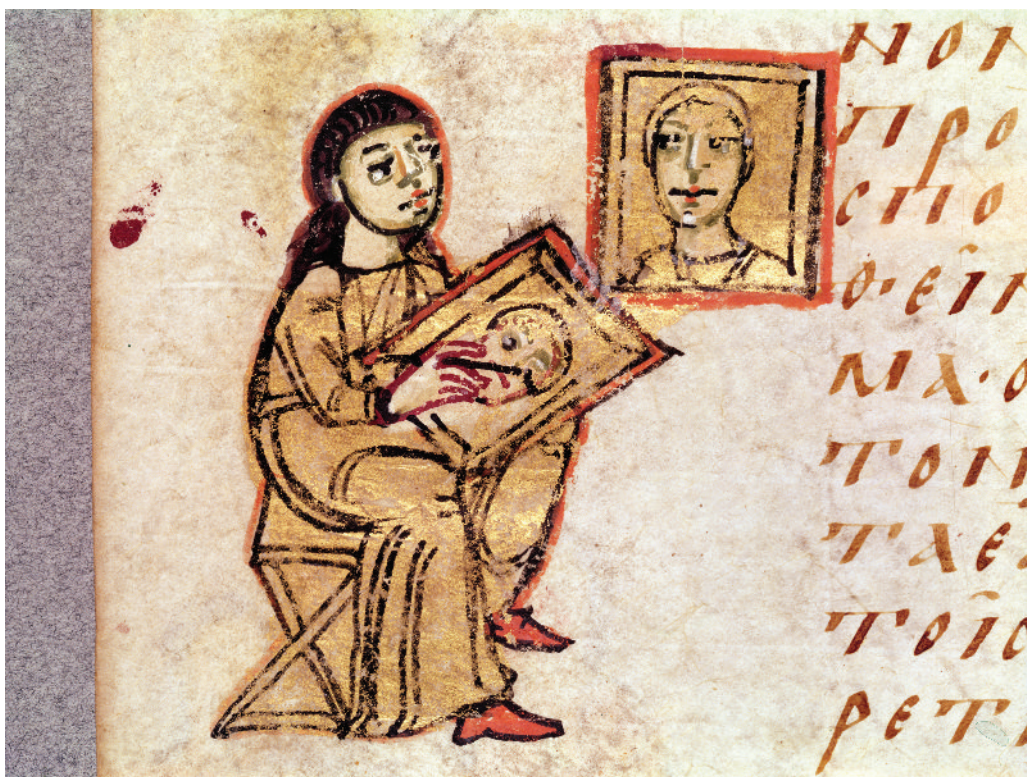 ΝΟΝ
ΠΡΟ
ΣΠΟ
Θ·ΕῖΝ
ΜΑ·Ο
ΤΟΙ
ΤΑΕ
ΤΟῖΣ
ΡΕΤ